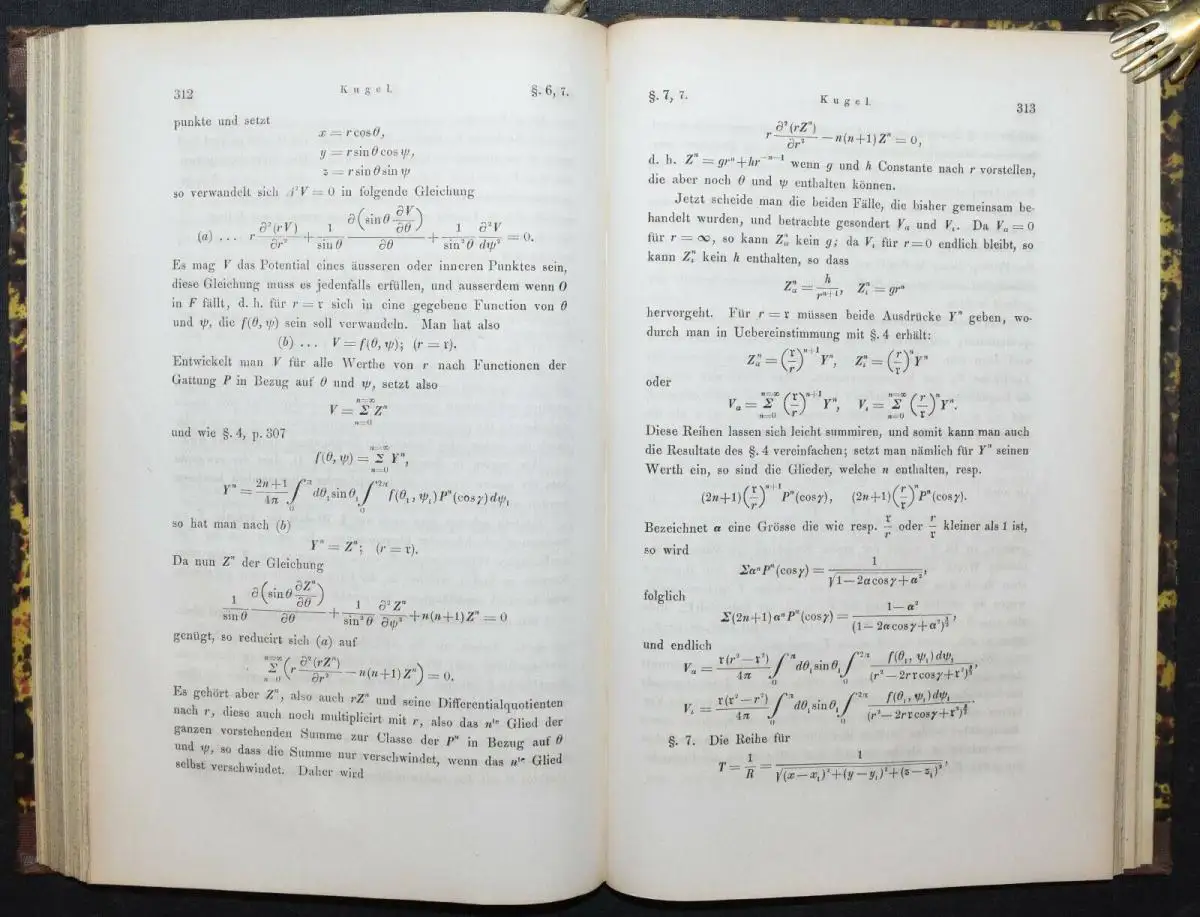 312 Kugel. §. 6, 7.
punkte und setzt
x = r cos θ,
y = r sin θ cos ψ,
z = r sin θ sin ψ
so verwandelt sich Δ²V = 0 in folgende Gleichung
(a) ... r ∂²(rV)/∂r² + 1/sin θ ∂(sin θ ∂V/∂θ)/∂θ + 1/sin²θ ∂²V/dψ² = 0.
Es mag V das Potential eines äusseren oder inneren Punktes sein,
diese Gleichung muss es jedenfalls erfüllen, und ausserdem wenn O
in F fällt, d. h. für r = 𝔯 sich in eine gegebene Function von θ
und ψ, die f(θ, ψ) sein soll verwandeln. Man hat also
(b) ... V = f(θ, ψ); (r = 𝔯).
Entwickelt man V für alle Werthe von r nach Functionen der
Gattung P in Bezug auf θ und ψ, setzt also
V = Σ_{n=0}^{n=∞} Zⁿ
und wie §. 4, p. 307
f(θ, ψ) = Σ_{n=0}^{n=∞} Yⁿ,
Yⁿ = (2n+1)/4π ∫₀^π dθ₁ sin θ₁ ∫₀^{2π} f(θ₁, ψ₁) Pⁿ(cos γ) dψ₁
so hat man nach (b)
Yⁿ = Zⁿ; (r = 𝔯).
Da nun Zⁿ der Gleichung
1/sin θ ∂(sin θ ∂Zⁿ/∂θ)/∂θ + 1/sin²θ ∂²Zⁿ/∂ψ² + n(n+1)Zⁿ = 0
genügt, so reducirt sich (a) auf
Σ_{n=0}^{n=∞} (r ∂²(rZⁿ)/∂r² − n(n+1)Zⁿ) = 0.
Es gehört aber Zⁿ, also auch rZⁿ und seine Differentialquotienten
nach r, diese auch noch multiplicirt mit r, also das nᵗᵉ Glied der
ganzen vorstehenden Summe zur Classe der Pⁿ in Bezug auf θ
und ψ, so dass die Summe nur verschwindet, wenn das nᵗᵉ Glied
selbst verschwindet. Daher wird
§. 7, 7. Kugel. 313
r ∂²(rZⁿ)/∂r² − n(n+1)Zⁿ = 0,
d. h. Zⁿ = grⁿ + hr⁻ⁿ⁻¹ wenn g und h Constante nach r vorstellen,
die aber noch θ und ψ enthalten können.
Jetzt scheide man die beiden Fälle, die bisher gemeinsam be-
handelt wurden, und betrachte gesondert Vₐ und Vᵢ. Da Vₐ = 0
für r = ∞, so kann Zₐⁿ kein g; da Vᵢ für r = 0 endlich bleibt, so
kann Zᵢⁿ kein h enthalten, so dass
Zₐⁿ = h/rⁿ⁺¹, Zᵢⁿ = grⁿ
hervorgeht. Für r = 𝔯 müssen beide Ausdrücke Yⁿ geben, wo-
durch man in Uebereinstimmung mit §. 4 erhält:
Zₐⁿ = (𝔯/r)ⁿ⁺¹ Yⁿ, Zᵢⁿ = (r/𝔯)ⁿ Yⁿ
oder
Vₐ = Σ_{n=0}^{n=∞} (𝔯/r)ⁿ⁺¹ Yⁿ, Vᵢ = Σ_{n=0}^{n=∞} (r/𝔯)ⁿ Yⁿ.
Diese Reihen lassen sich leicht summiren, und somit kann man auch
die Resultate des §. 4 vereinfachen; setzt man nämlich für Yⁿ seinen
Werth ein, so sind die Glieder, welche n enthalten, resp.
(2n+1)(𝔯/r)ⁿ⁺¹ Pⁿ(cos γ), (2n+1)(r/𝔯)ⁿ Pⁿ(cos γ).
Bezeichnet α eine Grösse die wie resp. 𝔯/r oder r/𝔯 kleiner als 1 ist,
so wird
ΣαⁿPⁿ(cos γ) = 1/√(1−2α cos γ+α²),
folglich
Σ(2n+1)αⁿPⁿ(cos γ) = (1−α²)/(1−2α cos γ+α²)^{3/2},
und endlich
Vₐ = 𝔯(r²−𝔯²)/4π ∫₀^π dθ₁ sin θ₁ ∫₀^{2π} f(θ₁, ψ₁)dψ₁/(r²−2r𝔯 cos γ+𝔯²)^{3/2},
Vᵢ = 𝔯(𝔯²−r²)/4π ∫₀^π dθ₁ sin θ₁ ∫₀^{2π} f(θ₁, ψ₁)dψ₁/(r²−2r𝔯 cos γ+𝔯²)^{3/2}.
§. 7. Die Reihe für
T = 1/R = 1/√((x−x₁)²+(y−y₁)²+(z−z₁)²),